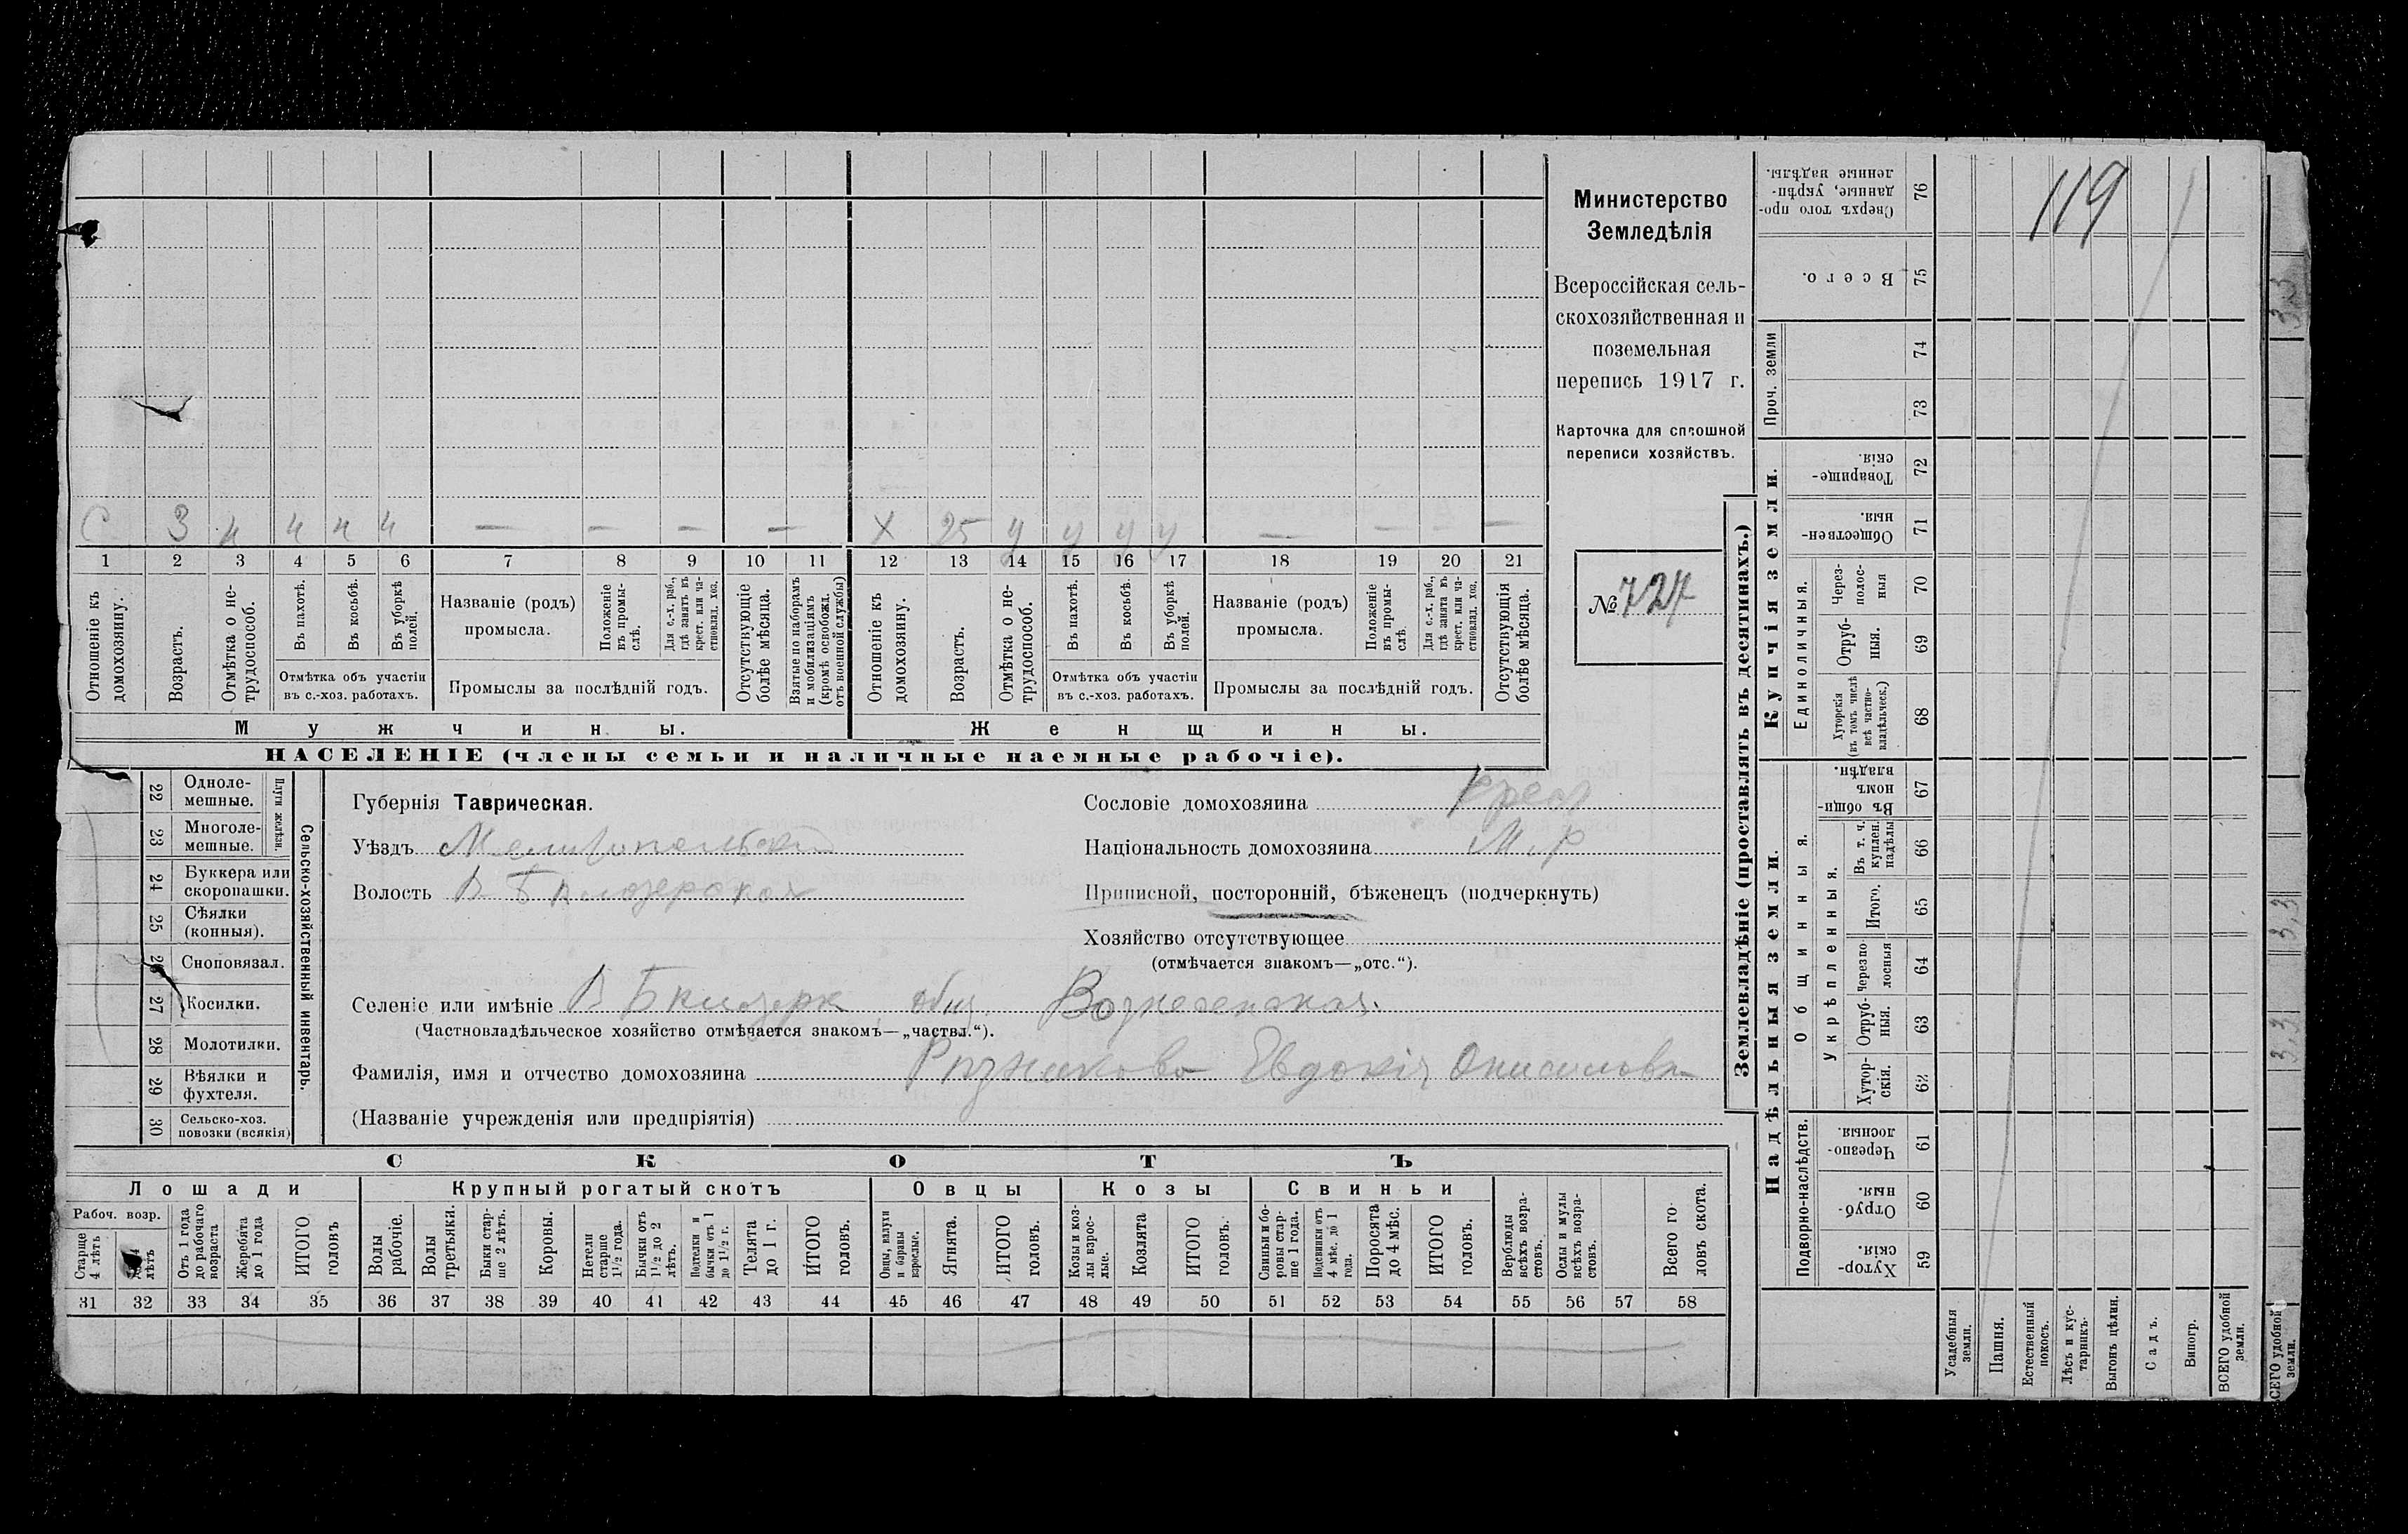 С 3 н н н н — — — — Х 25 у у у у — — — —
1 2 3 4 5 6 7 8 9 10 11 12 13 14 15 16 17 18 19 20 21
Отношеніе къ домохозяину.
Возрастъ.
Отмѣтка о не-
трудоспособ.
Въ пахотѣ.
Въ косьбѣ.
Въ уборкѣ
полей.
Отмѣтка объ участіи
въ с.-хоз. работахъ.
Названіе (родъ)
промысла.
Положеніе
въ промы-
слѣ.
Для с.-х. раб.,
гдѣ занятъ въ
крест. или ча-
стновлад. хоз.
Промыслы за послѣдній годъ.
Отсутствующіе
болѣе мѣсяца.
Взятые по наборамъ
и мобилизаціямъ
(кромѣ освобожд.
отъ военной службы)
Отношеніе къ
домохозяину.
Возрастъ.
Отмѣтка о не-
трудоспособ.
Въ пахотѣ.
Въ косьбѣ.
Въ уборкѣ
полей.
Отмѣтка объ участіи
въ с.-хоз. работахъ.
Названіе (родъ)
промысла.
Положеніе
въ промы-
слѣ.
Для с.-х. раб.,
гдѣ занята въ
крест. или ча-
стновлад. хоз.
Промыслы за послѣдній годъ.
Отсутствующія
болѣе мѣсяца.
Мужчины.
Женщины.
НАСЕЛЕНІЕ (члены семьи и наличные наемные рабочіе).
Министерство
Земледѣлія
Всероссійская сель-
скохозяйственная и
поземельная
перепись 1917 г.
Карточка для сплошной
переписи хозяйствъ.
№ 727
22 Одноле-
мешные.
23 Многоле-
мешные.
Плуги желѣзн.
24 Буккера или
скоропашки.
25 Сѣялки
(конныя).
26 Сноповязал.
27 Косилки.
28 Молотилки.
29 Вѣялки и
фухтеля.
30 Сельско-хоз.
повозки (всякія)
Сельско-хозяйственный инвентарь.
Губернія Таврическая.
Уѣздъ Мелитопольскій
Волость В Бѣлозерская
Сословіе домохозяина Крест
Національность домохозяина М. Р
Приписной, посторонній, бѣженецъ (подчеркнуть)
Хозяйство отсутствующее
(отмѣчается знакомъ—„отс.“).
Селеніе или имѣніе В Бѣлозерк общ. Вознесенская.
(Частновладѣльческое хозяйство отмѣчается знакомъ—„частвл.“).
Фамилія, имя и отчество домохозяина Рѣзникова Евдокія Онисимовн
(Названіе учрежденія или предпріятія)
СКОТЪ
Лошади
Крупный рогатый скотъ
Овцы
Козы
Свиньи
Рабоч. возр.
Старше
4 лѣтъ
лѣтъ
Отъ 1 года
до рабочаго
возраста
Жеребята
до 1 года
ИТОГО
головъ
Волы
рабочіе.
Волы
третьяки.
Быки стар-
ше 2 лѣтъ.
Коровы.
Нетели
старше
1½ года.
Бычки отъ
1½ до 2
лѣтъ.
Подтелки и
бычки отъ 1
до 1½ г.
Телята
до 1 г.
ИТОГО
головъ.
Овцы, валухи
и бараны
взрослые.
Ягнята.
ИТОГО
головъ.
Козы и коз-
лы взрос-
лые.
Козлята
ИТОГО
головъ.
Свиньи и бо-
ровы стар-
ше 1 года.
Подсвинки отъ
4 мѣс. до 1
года.
Поросята
до 4 мѣс.
ИТОГО
головъ.
Верблюды
всѣхъ возра-
стовъ.
Ослы и мулы
всѣхъ возра-
стовъ.
Всего го-
ловъ скота.
31 32 33 34 35 36 37 38 39 40 41 42 43 44 45 46 47 48 49 50 51 52 53 54 55 56 57 58
Землевладѣніе (проставлять въ десятинахъ.)
Купчія земли.
Надѣльныя земли.
Сверхъ того про-
данные, укрѣп-
ленные надѣлы.
76
Всего.
75
Проч. земли
74
73
Товарище-
скія.
72
Обществен-
ныя.
71
Единоличныя.
Через-
полос-
ныя
70
Отруб-
ныя.
69
Хуторскія
(въ томъ числѣ
всѣ частно-
владѣльческ.)
68
Общинныя.
Въ общи-
номъ
владѣн.
67
Укрѣпленныя.
Въ т. ч.
куплен.
надѣлы
66
Итого.
65
Черезпо-
лосныя
64
Отруб-
ныя.
63
Хутор-
скія.
62
Подворно-наслѣдств.
Черезпо-
лосныя.
61
Отруб-
ныя.
60
Хутор-
скія.
59
Усадебныя
земли.
Пашня.
Естественный
покосъ.
Лѣсъ и кус-
тарникъ.
Выгонъ цѣлин.
Садъ.
Виногр.
ВСЕГО удобной
земли.
119
3,3
3,3
3,3
СЕГО удобной
земли.